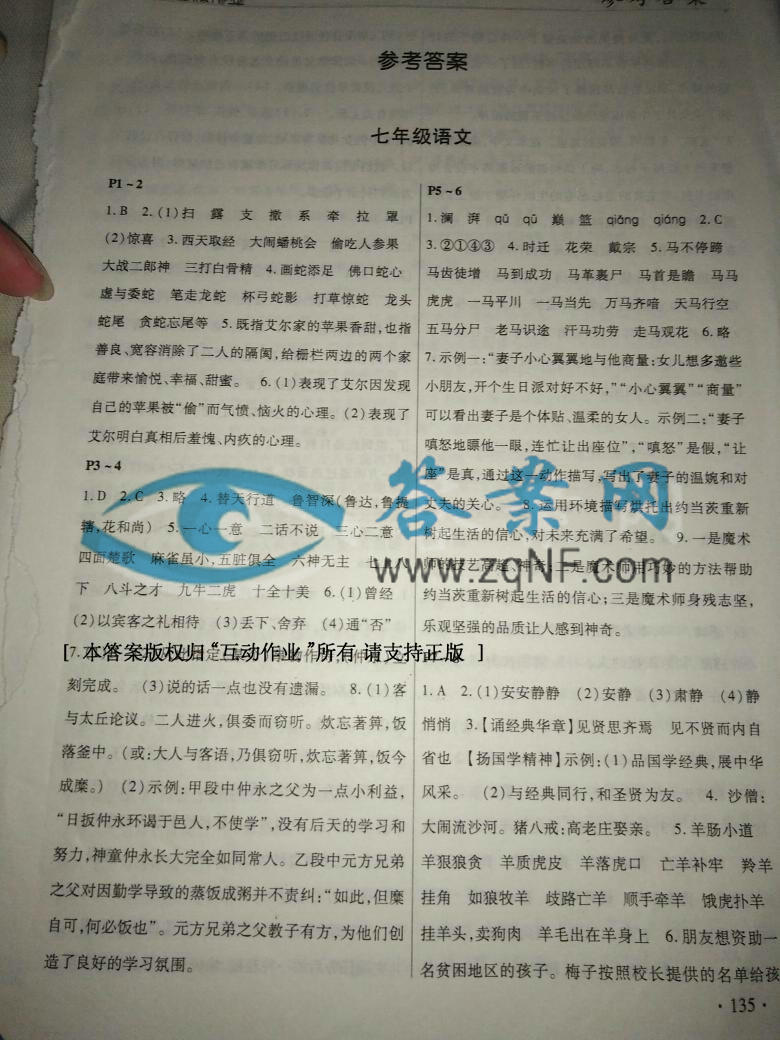 参考答案
七年级语文
P1~2
1.B 2.(1)扫 露 支 撤 系 牵 拉 罩
(2)惊喜 3.西天取经 大闹蟠桃会 偷吃人参果
大战二郎神 三打白骨精 4.画蛇添足 佛口蛇心
虚与委蛇 笔走龙蛇 杯弓蛇影 打草惊蛇 龙头
蛇尾 贪蛇忘尾等 5.既指艾尔家的苹果香甜,也指
善良、宽容消除了二人的隔阂,给栅栏两边的两个家
庭带来愉悦、幸福、甜蜜。 6.(1)表现了艾尔因发现
自己的苹果被“偷”而气愤、恼火的心理。(2)表现了
艾尔明白真相后羞愧、内疚的心理。
P3~4
1.D 2.C 3.略 4.替天行道 鲁智深(鲁达,鲁提
辖,花和尚) 5.一心一意 二话不说 三心二意
四面楚歌 麻雀虽小,五脏俱全 六神无主 七上八
下 八斗之才 九牛二虎 十全十美 6.(1)曾经
(2)以宾客之礼相待 (3)丢下、舍弃 (4)通“否”
[ 本答案版权归“互动作业”所有,请支持正版 ]
刻完成。 (3)说的话一点也没有遗漏。 8.(1)客
与太丘论议。二人进火,俱委而窃听。炊忘著箅,饭
落釜中。(或:大人与客语,乃俱窃听,炊忘著箅,饭今
成糜。) (2)示例:甲段中仲永之父为一点小利益,
“日扳仲永环谒于邑人,不使学”,没有后天的学习和
努力,神童仲永长大完全如同常人。乙段中元方兄弟
之父对因勤学导致的蒸饭成粥并不责纠:“如此,但糜
自可,何必饭也”。元方兄弟之父教子有方,为他们创
造了良好的学习氛围。
P5~6
1.澜 湃 qǔ qū 巅 篮 qiāng qiáng 2.C
3.②①④③ 4.时迁 花荣 戴宗 5.马不停蹄
马齿徒增 马到成功 马革裹尸 马首是瞻 马马
虎虎 一马平川 一马当先 万马齐喑 天马行空
五马分尸 老马识途 汗马功劳 走马观花 6.略
7.示例一:“妻子小心翼翼地与他商量:女儿想多邀些
小朋友,开个生日派对好不好,”“小心翼翼”“商量”
可以看出妻子是个体贴、温柔的女人。示例二:“妻子
嗔怒地瞟他一眼,连忙让出座位”,“嗔怒”是假,“让
座”是真,通过这一动作描写,写出了妻子的温婉和对
丈夫的关心。 8.运用环境描写烘托出约当茨重新
树起生活的信心,对未来充满了希望。 9.一是魔术
师的技艺高超、神奇;二是魔术师用巧妙的方法帮助
约当茨重新树起生活的信心;三是魔术师身残志坚,
乐观坚强的品质让人感到神奇。
1.A 2.(1)安安静静 (2)安静 (3)肃静 (4)静
悄悄 3.【诵经典华章】见贤思齐焉 见不贤而内自
省也 【扬国学精神】示例:(1)品国学经典,展中华
风采。 (2)与经典同行,和圣贤为友。 4.沙僧:
大闹流沙河。猪八戒:高老庄娶亲。 5.羊肠小道
羊狠狼贪 羊质虎皮 羊落虎口 亡羊补牢 羚羊
挂角 如狼牧羊 歧路亡羊 顺手牵羊 饿虎扑羊
挂羊头,卖狗肉 羊毛出在羊身上 6.朋友想资助一
名贫困地区的孩子。梅子按照校长提供的名单给孩
·135·
答案网
www.zqNF.com